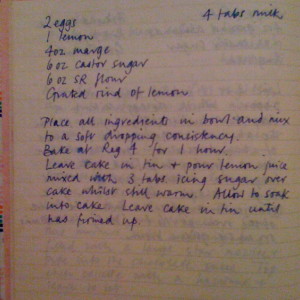 2 eggs
4 tabs milk
1 lemon
4oz marge
6 oz castor sugar
6 oz SR flour
Grated rind of lemon
Place all ingredients in bowl and mix
to a soft dropping consistency.
Bake at Reg 4 for 1 hour
Leave cake in tin + pour lemon juice
mixed with 3 tabs icing sugar over
cake whilst still warm. Allow to soak
into cake. Leave cake in tin until
has firmed up.